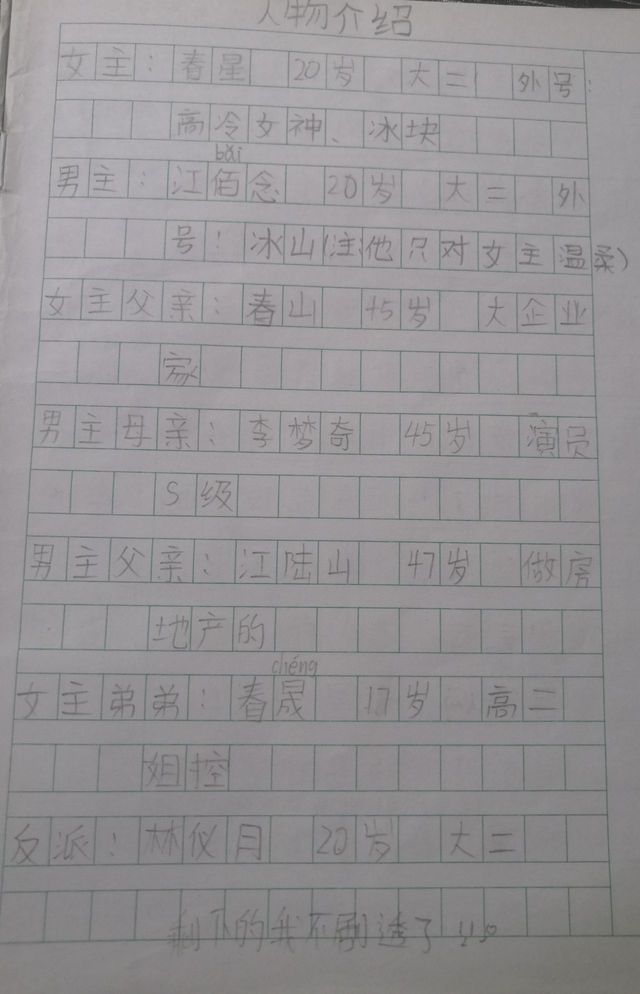 人物介绍
女主：春星 20岁 大二 外号：
高冷女神、冰块
bǎi
男主：江佰念 20岁 大二 外
号：冰山(注他只对女主温柔)
女主父亲：春山 45岁 大企业
家
男主母亲：李梦奇 45岁 演员
S级
男主父亲：江陆山 47岁 做房
地产的
chéng
女主弟弟：春晟 17岁 高二
姐控
反派：林仪月 20岁 大二
剩下的我不剧透了